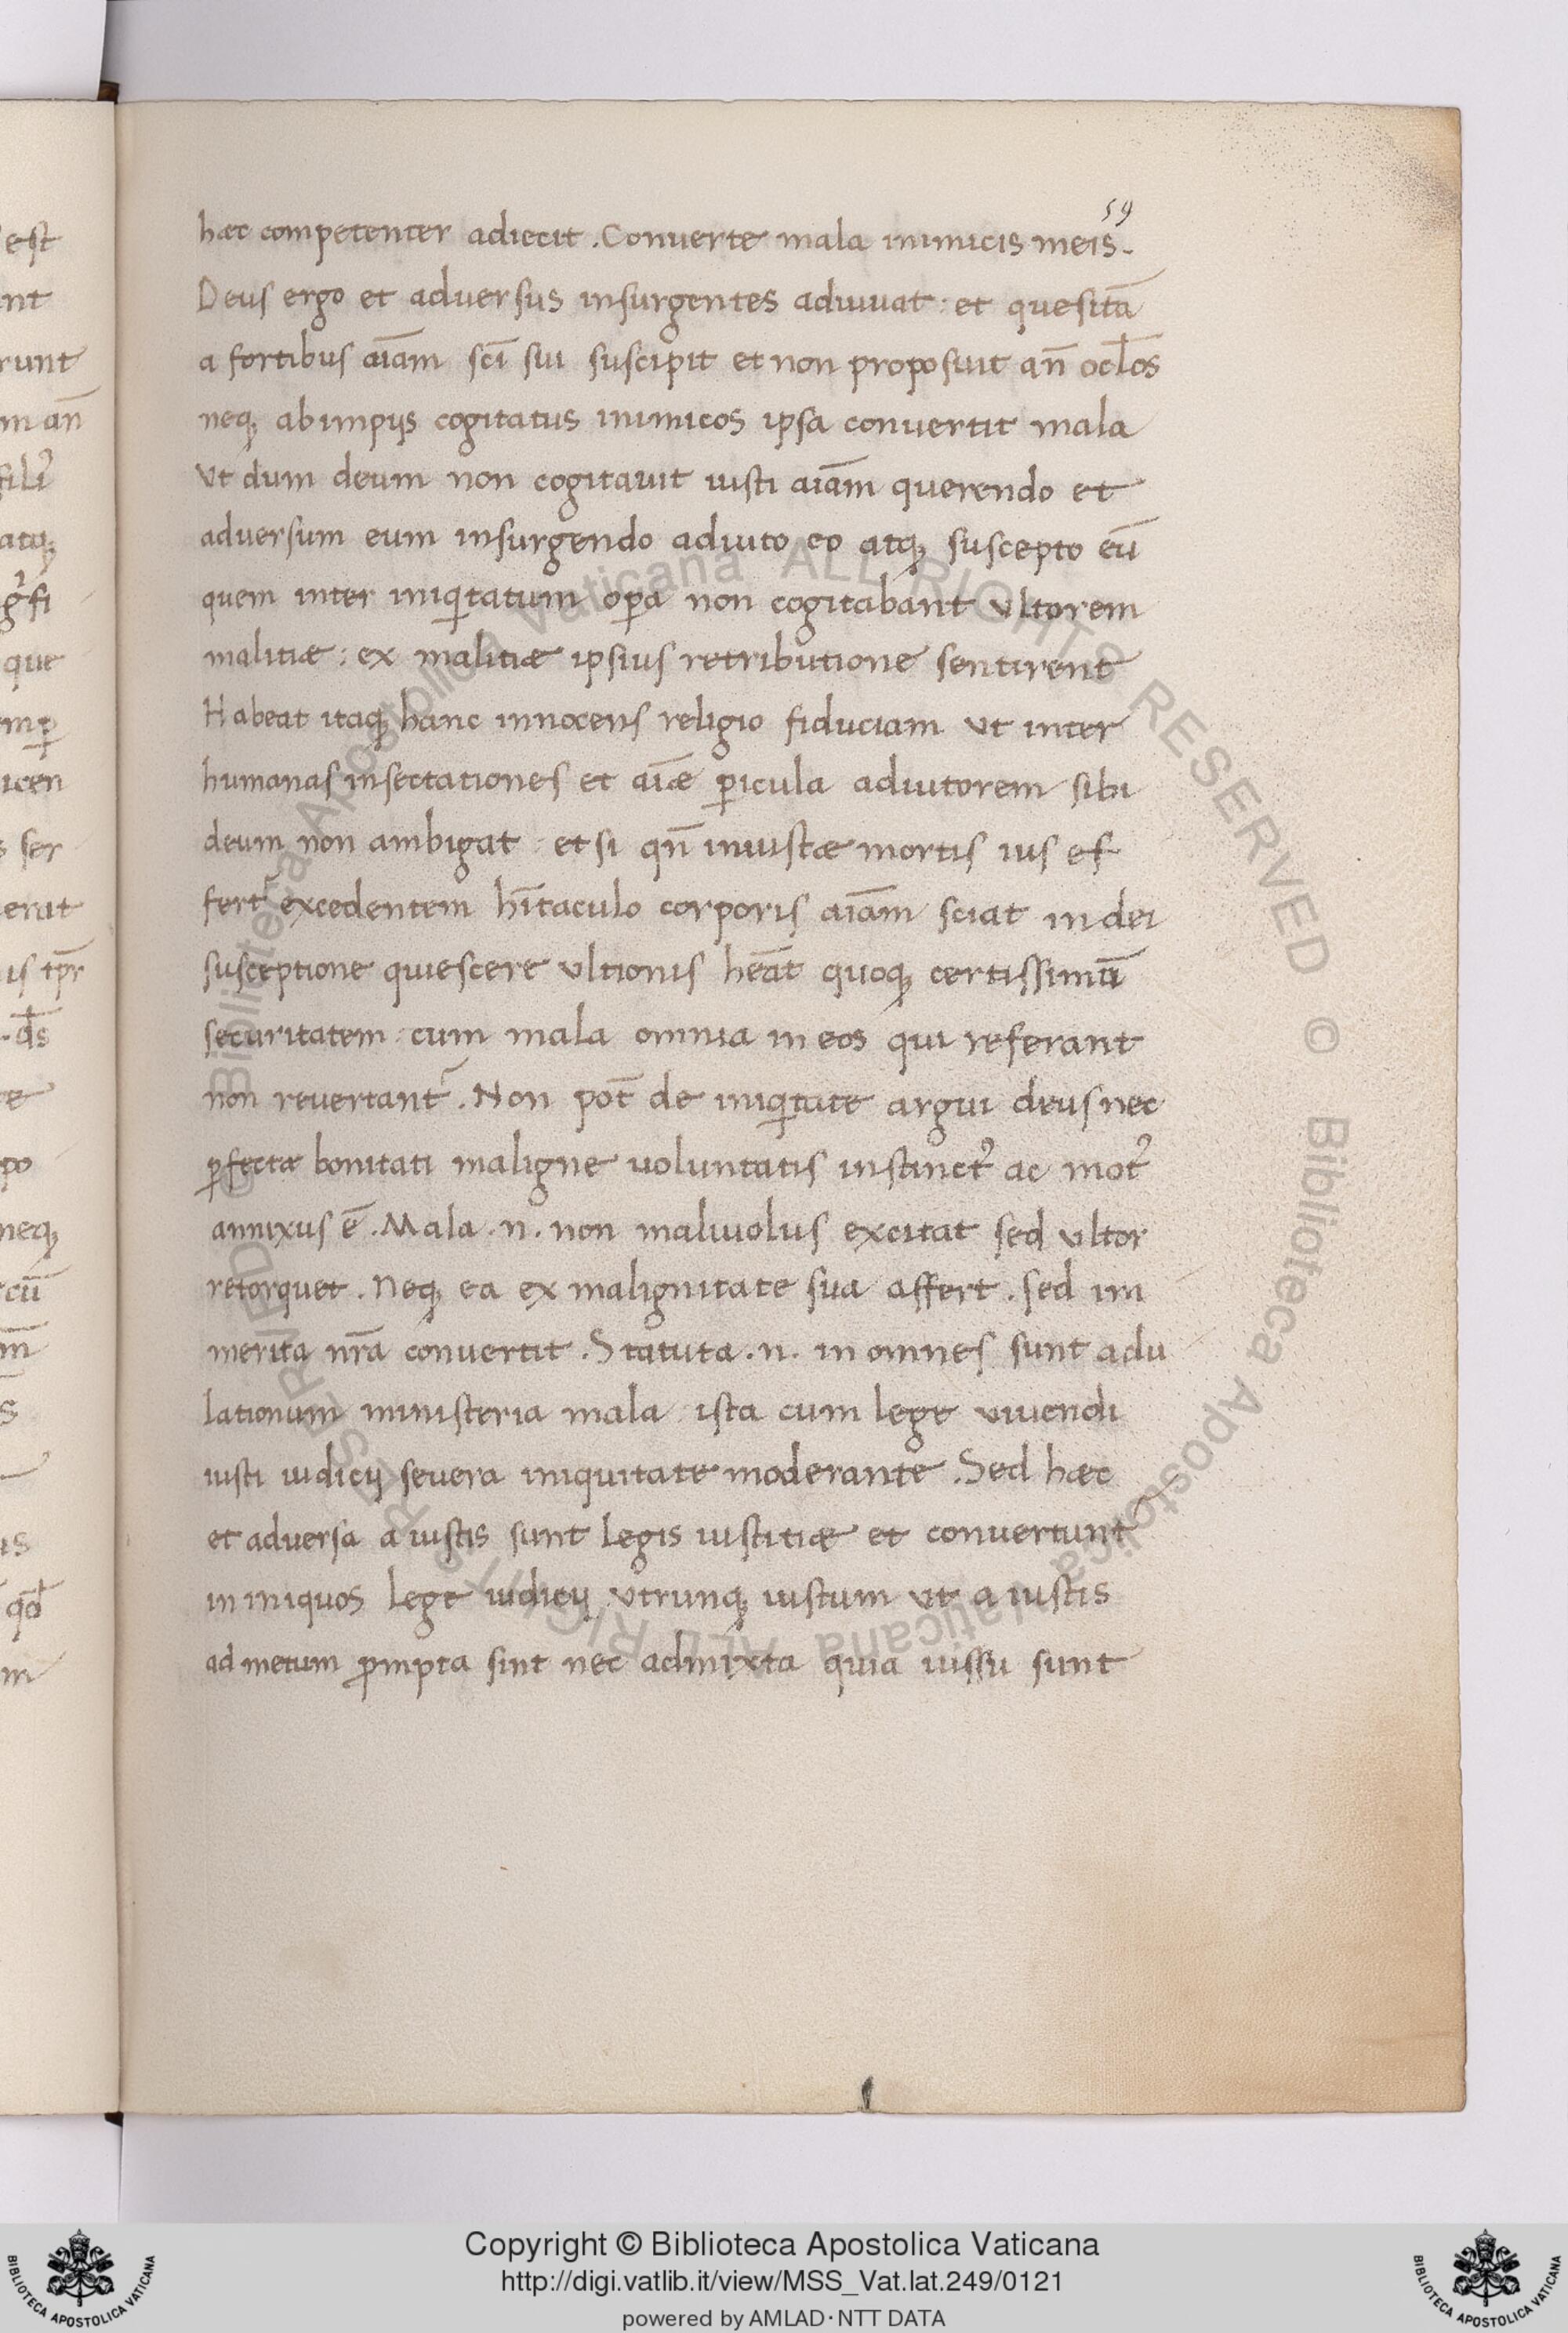 59
hæc competenter adiecit. Converte mala inimicis meis.
Deus ergo et adversus insurgentes adiuvat: et quesitā
a fortibus aīam scī sui suscipit et non proposuit añ ocl̄os
neq; ab impijs cogitatus inimicos ipsa convertit mala
Ut dum deum non cogitavit iusti aīam querendo et
adversum eum insurgendo adiuto eo atq; suscepto eū
quem inter iniqitatum opa non cogitabant ultorem
malitiæ: ex malitiæ ipsius retributione sentirent
Habeat itaq; hanc innocens religio fiduciam ut inter
humanas insectationes et aīæ pericula adiutorem sibi
deum non ambigat: et si qñ iniustæ mortis ius ef
fert̄ excedentem hītaculo corporis aīam sciat in dei
susceptione quiescere ultionis heāt quoq; certissimū
securitatem: cum mala omnia in eos qui referant
non revertant̄. Non pot̄ de iniqitate argui deus nec
pfectæ bonitati maligne voluntatis instinct9 ac mot9
annixus ē. Mala .n. non malivolus excitat sed ultor
retorquet. Neq; ea ex malignitate sua affert. sed im
merita nr̄a convertit. Statuta .n. in omnes sunt adu
lationum ministeria mala ista cum lege vivendi
iusti iudicij severa iniquitate moderante. Sed hæc
et adversa a iustis sunt legis iustitiæ et convertunt
in iniquos lege iudicij utrunq; iustum ut a iustis
ad metum prompta sint nec admixta quia iussu sunt
est
nt
runt
m añ
atq;
que
icen
ser
erat
is tpr̄
neq;
cū
Copyright © Biblioteca Apostolica Vaticana
http://digi.vatlib.it/view/MSS_Vat.lat.249/0121
powered by AMLAD·NTT DATA
BIBLIOTECA APOSTOLICA VATICANA
BIBLIOTECA APOSTOLICA VATICANA
© Biblioteca Apostolica Vaticana ALL RIGHTS RESERVED © Biblioteca Apostolica Vaticana ALL RIGHTS RESERVED